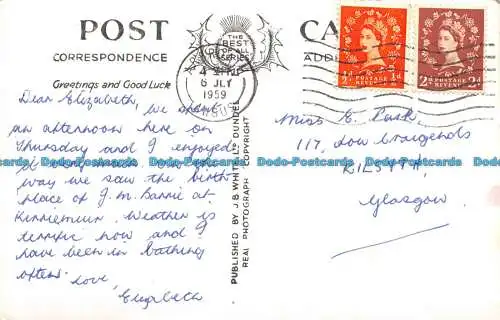 POST CA
CORRESPONDENCE ADD
THE
BEST
OF ALL
SERIES
Greetings and Good Luck
6 JLY
1959
½d ½d
POSTAGE
REVENUE
2d 2d
POSTAGE
REVENUE
Dear Elizabeth, we spent
an afternoon here on
Thursday and I enjoyed
it very much. On the
way we saw the birth-
place of J.M. Barrie at
Kirriemuir. Weather is
terrific now and I
have been in bathing
often.
Love,
Elizabeth
PUBLISHED BY J.B. WHITE LTD DUNDEE
REAL PHOTOGRAPH COPYRIGHT
Miss E. Park,
117, Low Craigends
KILSYTH,
Glasgow.
Dodo-Postcards Dodo-Postcards Dodo-Postcards Dodo-Postcards